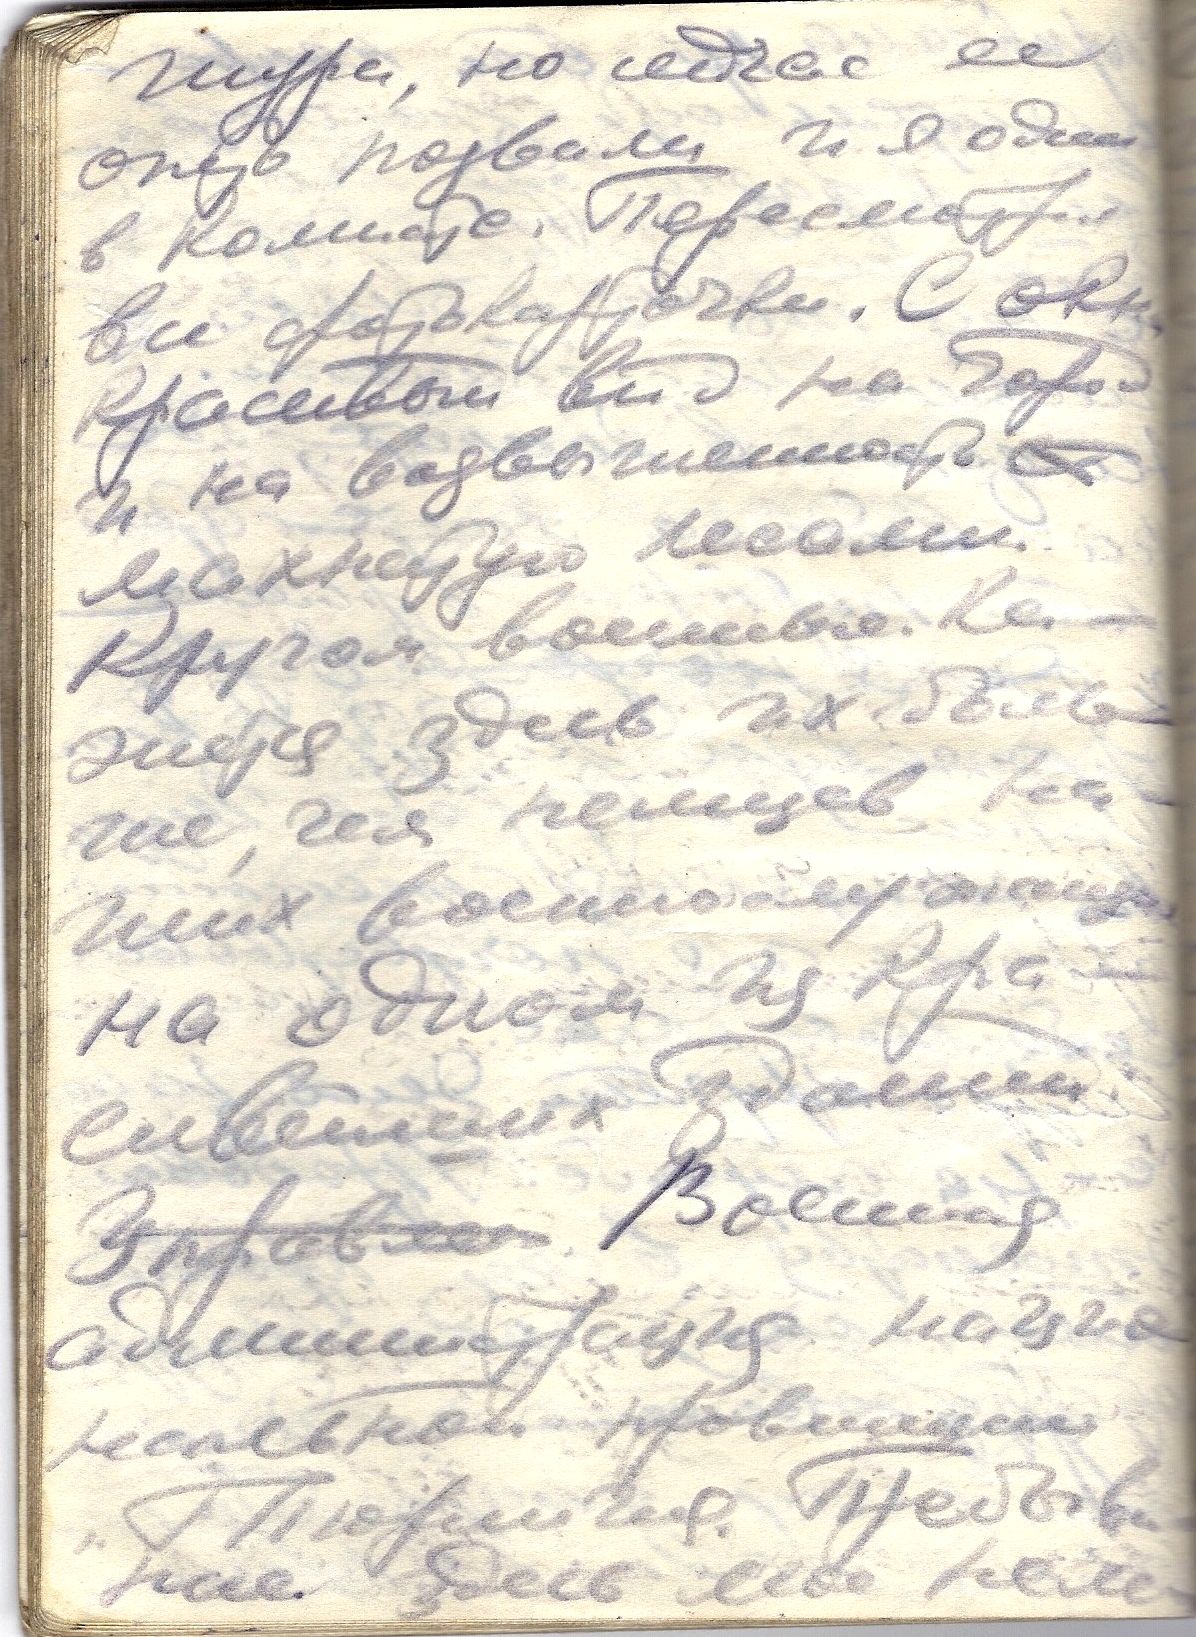 тура, но сейчас ее
опять позвали и я один
в комнате. Пересмотрел
все фотокарточки. С окна
красивый вид на город
и на возвышенность
мохнатую лесами.
Кругом военные. Ка-
жется здесь их боль-
ше, чем немцев на-
ших военнослужащих
на одном из кра-
сивейших зданий.
Управлен. Военная
администрация нацио
нальной провинции
"Тюрингия. Пребыва
ние здесь мое нем